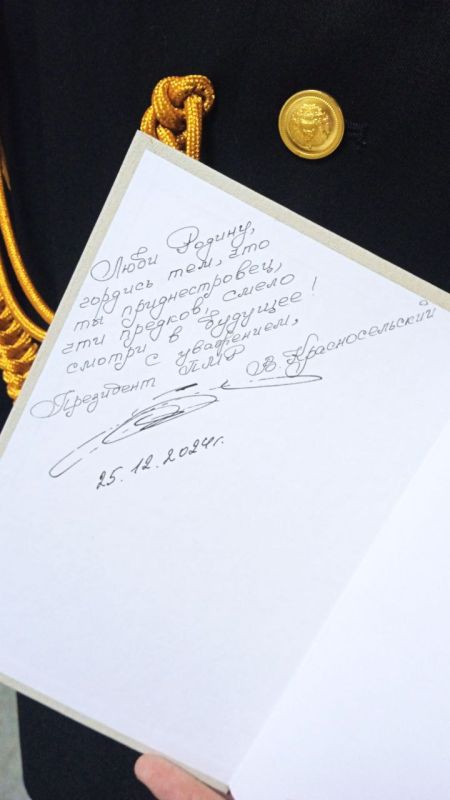 Люби Родину,
гордись тем, что
ты приднестровец,
чти предков, смело
смотри в будущее!
С уважением,
Президент ПМР В. Красносельский
25.12.2024г.